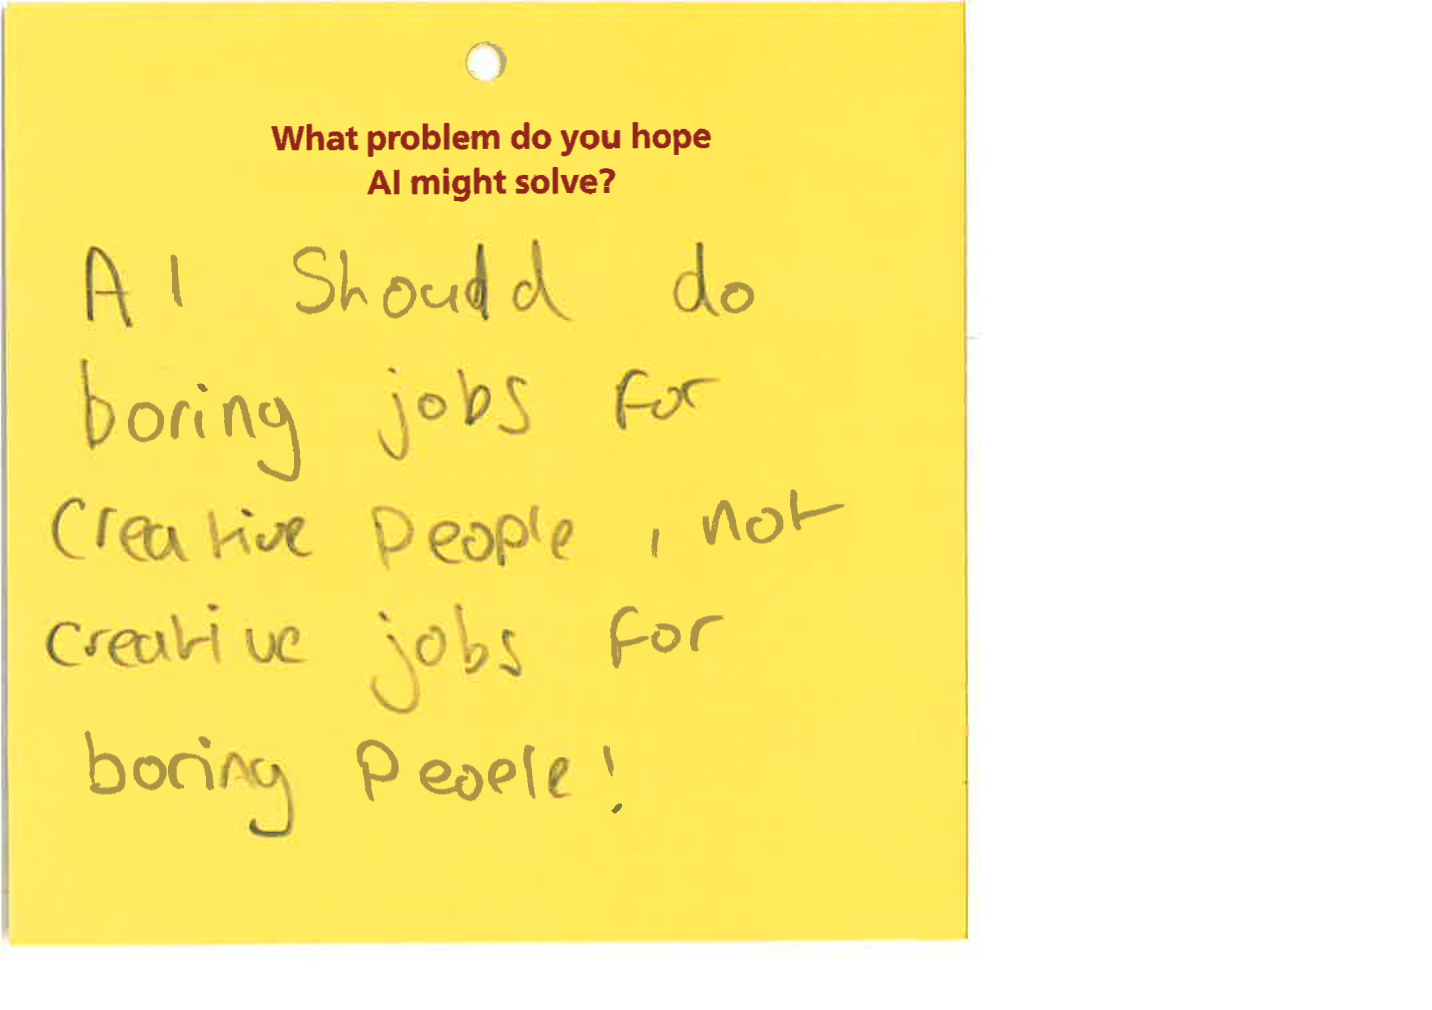 What problem do you hope
AI might solve?
AI should do
boring jobs for
creative people, not
creative jobs for
boring people!